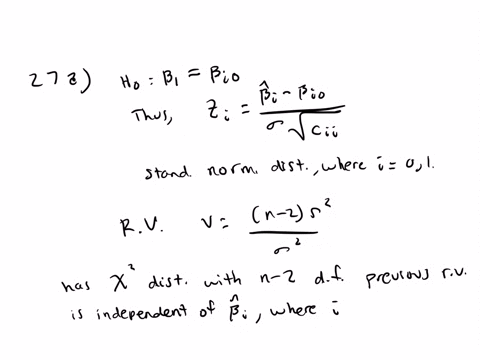 27a) H₀ : β₁ = βᵢ₀
Thus, Zᵢ = (β̂ᵢ - βᵢ₀) / (σ √cᵢᵢ)
stand. norm. dist., where i = 0, 1.
R.V. V = (n-2) s² / σ²
has χ² dist. with n-2 d.f. previous r.v.
is independent of β̂ᵢ, where i